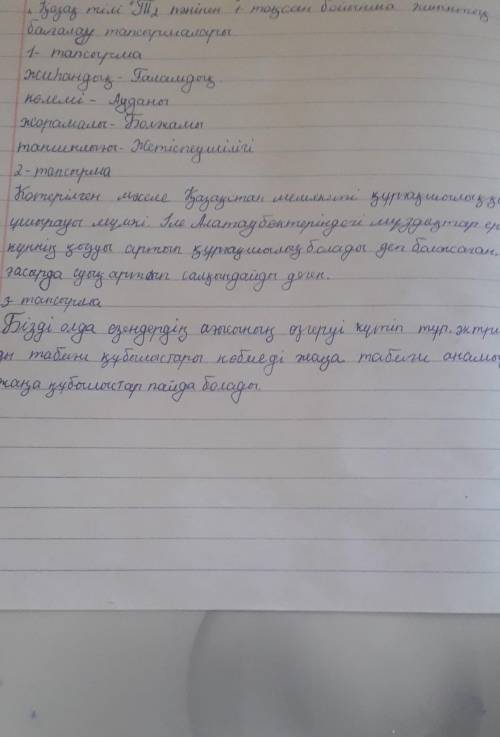 Қазақ тілі Т2 пәнінен 1 тоқсан бойынша жиынтық
бағалау тапсырмалары
1- тапсырма
жиһандық - Ғаламдық
көлемі - Ауданы
жорамалы - Болжамы
тапшылығы - Жетіспеушілігі
2- тапсырма
Көтерілген мәселе Қазақстан мемлкиті құрғақшылыққа
ұшырауы мүмкі. Іле Алатау бөктеріндегі мұздақтар ер
күннің қозды артып құрғақшылық болады деп болжаған.
ғасырда суық артып салқындайды деген.
3 тапсырма
Бізді алда өзендердің ағысының өзгеруі күтіп тұр. эктри
ды табиғи құбылыстары көбиеді жаңа табиғи анамы
жаңа құбылыстар пайда болады.